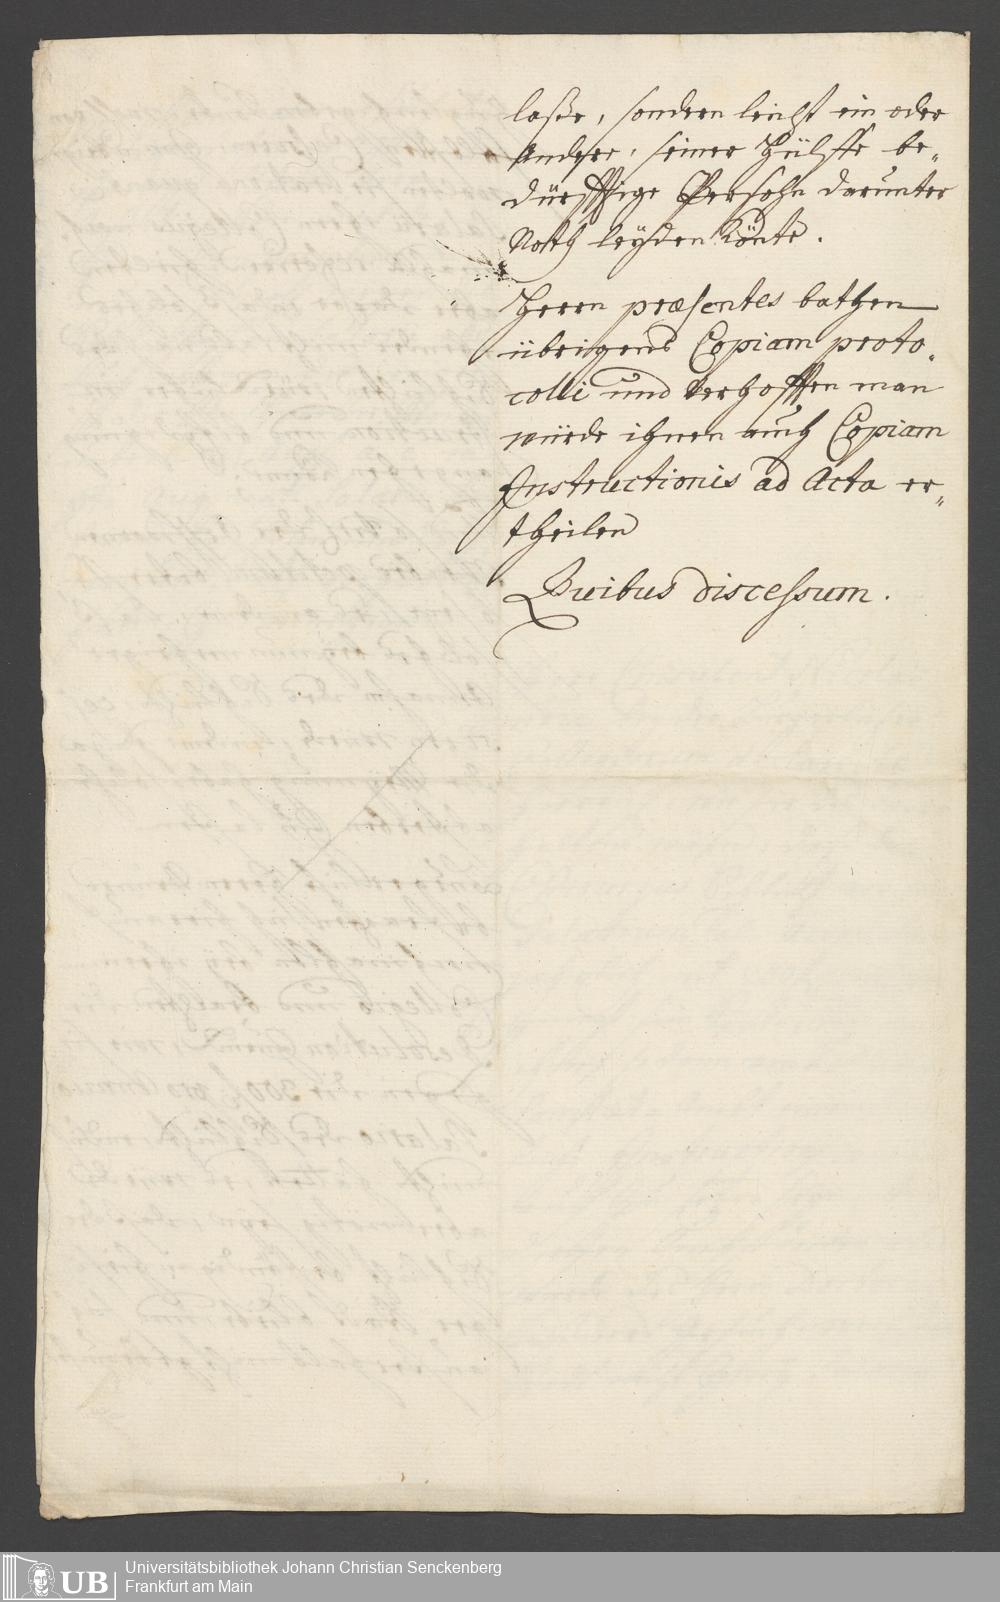 laße, sondern leicht ein oder
andere, seiner Hülffe be-
dürfftige Persohn darunter
Noth leyden könte.
Herrn præsentes bathen
übrigens Copiam proto-
colli und verhoffen man
würde ihnen auch Copiam
Instructionis ad Acta er-
theilen
Quibus discessum.
UB Universitätsbibliothek Johann Christian Senckenberg
Frankfurt am Main